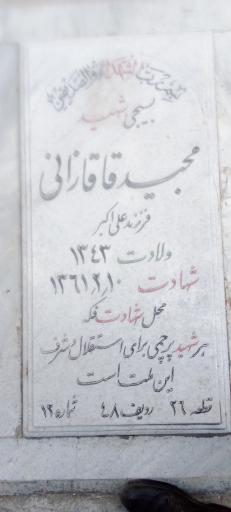 بسیجی شهید
مجید قاقازانی
فرزند علی اکبر
ولادت ۱۳۴۳
شهادت ۱۳۶۱٫۲٫۱۰
محل شهادت فکه
هر شهید پرچمی برای استقلال و شرف
این ملت است
قطعه ۲۶ ردیف ۴۸ شماره ۱۲